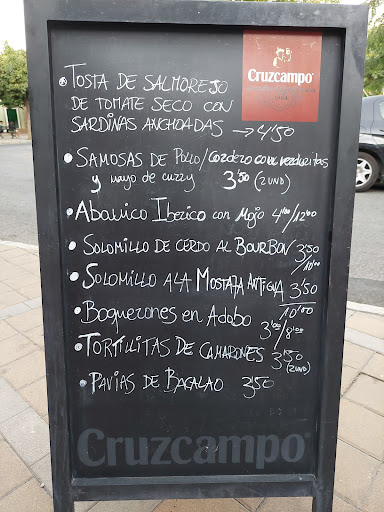 Cruzcampo
TOSTA DE SALMOREJO
DE TOMATE SECO CON
SARDINAS ANCHOADAS → 4'50
SAMOSAS DE POLLO/CORDERO CON verduritas
y mayo de curry 3'50 (2 UND)
ABANICO IBERICO CON MOJO 4'00/12'00
SOLOMILLO DE CERDO AL BOURBON 3'50
/10'00
SOLOMILLO A LA MOSTAZA ANTIGUA 3'50
/10'00
Boquerones en Adobo 3'00/8'00
TORTILLITAS DE CAMARONES 3'50
(2 UND)
PAVIAS DE BACALAO 3'50
Cruzcampo